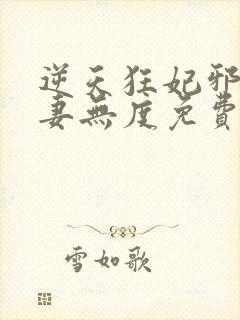 逆天狂妃邪
妻無度免費
雪如歌